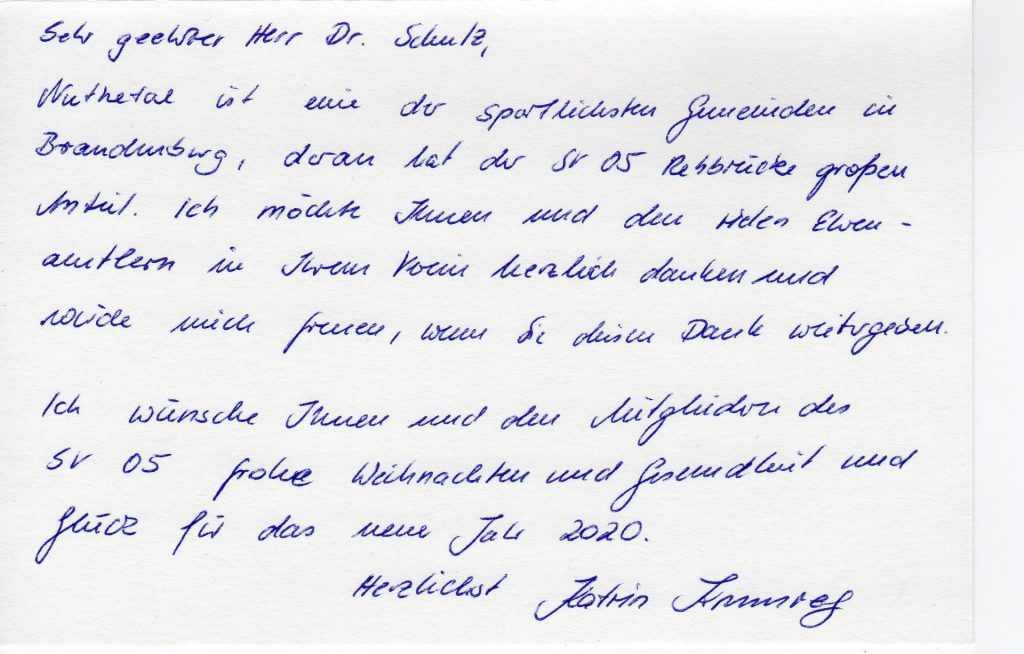 Sehr geehrter Herr Dr. Schulz,
Nuthetal ist eine der sportlichsten Gemeinden in
Brandenburg, daran hat der SV 05 Rehbrücke großen
Anteil. Ich möchte Ihnen und den vielen Ehren-
amtlern in Ihrem Verein herzlich danken und
würde mich freuen, wenn Sie diesen Dank weitergeben.
Ich wünsche Ihnen und den Mitgliedern des
SV 05 frohe Weihnachten und Gesundheit und
Glück für das neue Jahr 2020.
Herzlichst Katrin